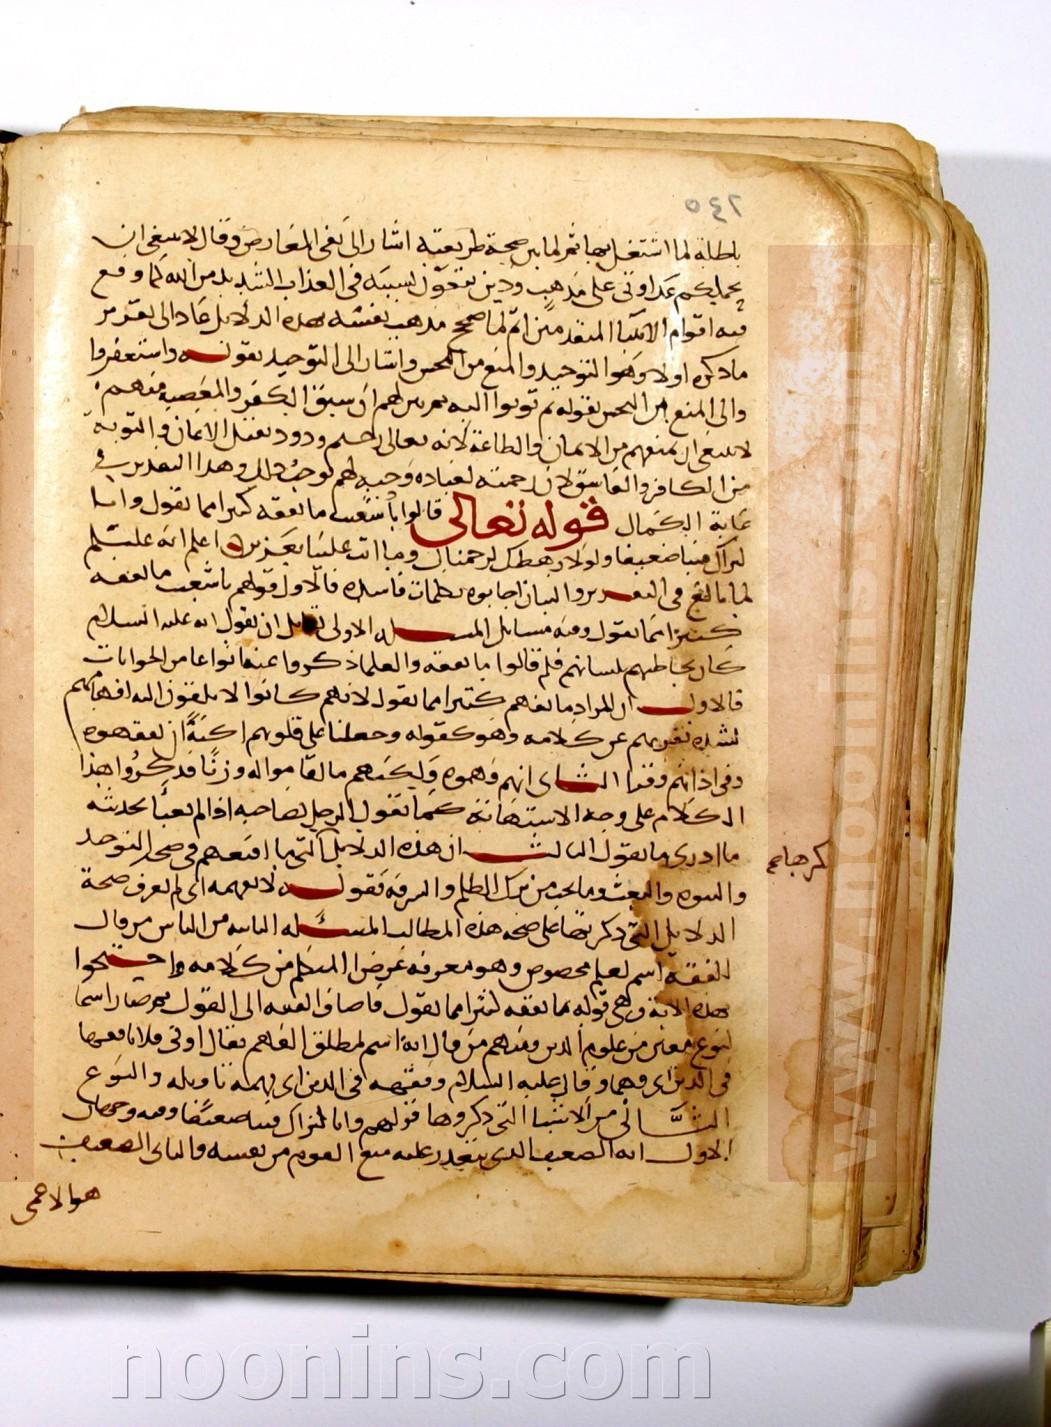 ٢٤٥
باطلة لما اشتغل بها ثم لما بين صحة طريقته اشار الى نفى المعارض وقال لا ينبغى ان
يحملكم عداوتى على مذهب ودين تقعون بسببه فى العذاب الشديد من الله كما وقع
فيه اقوام الانبيا المتقدمين ثم لما صحح مذهب نفسه بهذه الدلايل عاد الى تقرير
ما ذكره اولا وهو التوحيد والمنع من البخس واشار الى التوحيد بقوله واستغفروا
والى المنع من البخس بقوله ثم توبوا اليه ثم بين لهم ان سبق الكفر والمعصية منهم
لا ينبغى ان يمنعهم من الايمان والطاعة لانه تعالى رحيم ودود يقبل الايمان والتوبة
من الكافر والفاسق لان رحمته لعباده وحبه لهم توجب ذلك وهذا التقدير فى
غاية الكمال قوله تعالى قالوا يا شعيب ما نفقه كثيرا مما تقول وانا
لنراك فينا ضعيفا ولولا رهطك لرجمناك وما انت علينا بعزيز اعلم انه عليه السلام
لما بالغ فى التقرير والبيان اجابوه بكلمات فاسدة فالاول قولهم يا شعيب ما نفقه
كثيرا مما تقول وفيه مسايل المسئلة الاولى لقايل ان يقول انه عليه السلام
كان يخاطبهم بلسانهم فلم قالوا ما نفقه والعلما ذكروا عنه انواعا من الجوابات
فالاول ان المراد ما نفهم كثيرا مما تقول لانهم كانوا لا يلقون اليه افهامهم
لشدة نفرتهم عن كلامه وهو كقوله وجعلنا على قلوبهم اكنة ان يفقهوه
وفى اذانهم وقرا الثانى انهم فهموه ولكنهم ما اقاموا له وزنا فذكروا هذا
الكلام على وجه الاستهانة كما يقول الرجل لصاحبه اذا لم يعبا بحديثه
ما ادرى ما تقول الثالث ان هذه الدلايل التى ما اقنعهم فى صحة التوحيد
والنبوة والبعث وما يجب من ترك الظلم والسرقة فقوله لا نفهمه اى لم نعرف صحة
الدلايل التى ذكرتها على صحة هذه المطالب المسئلة الثانية من الناس من قال
الفقه اسم لعلم مخصوص وهو معرفة غرض المتكلم من كلامه واحتجوا
بهذه الاية وهى قوله ما نفقه كثيرا مما تقول فاضاف الفقه الى القول ثم صار اسما
لنوع معين من علوم الدين ومنهم من قال انه اسم لمطلق الفهم يقال اوتى فلانا فقها
فى الدين اى فهما وقال عليه السلام وفقهه فى الدين اى يفهمه تاويله والنوع
الثانى من الاشيا التى ذكروها قولهم وانا لنراك فينا ضعيفا وفيه وجهان
الاول انه الضعيف الذى يتعذر عليه منع القوم من نفسه والثانى الضعيف
هو الاعمى
www.noonins.com
noonins.com